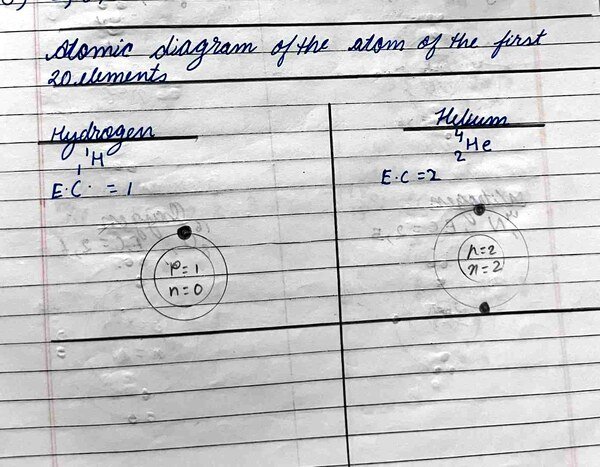 Atomic diagram of the atom of the first
20 elements
Hydrogen
¹₁H
E.C. = 1
P = 1
n = 0
Helium
⁴₂He
E.C = 2
p = 2
n = 2